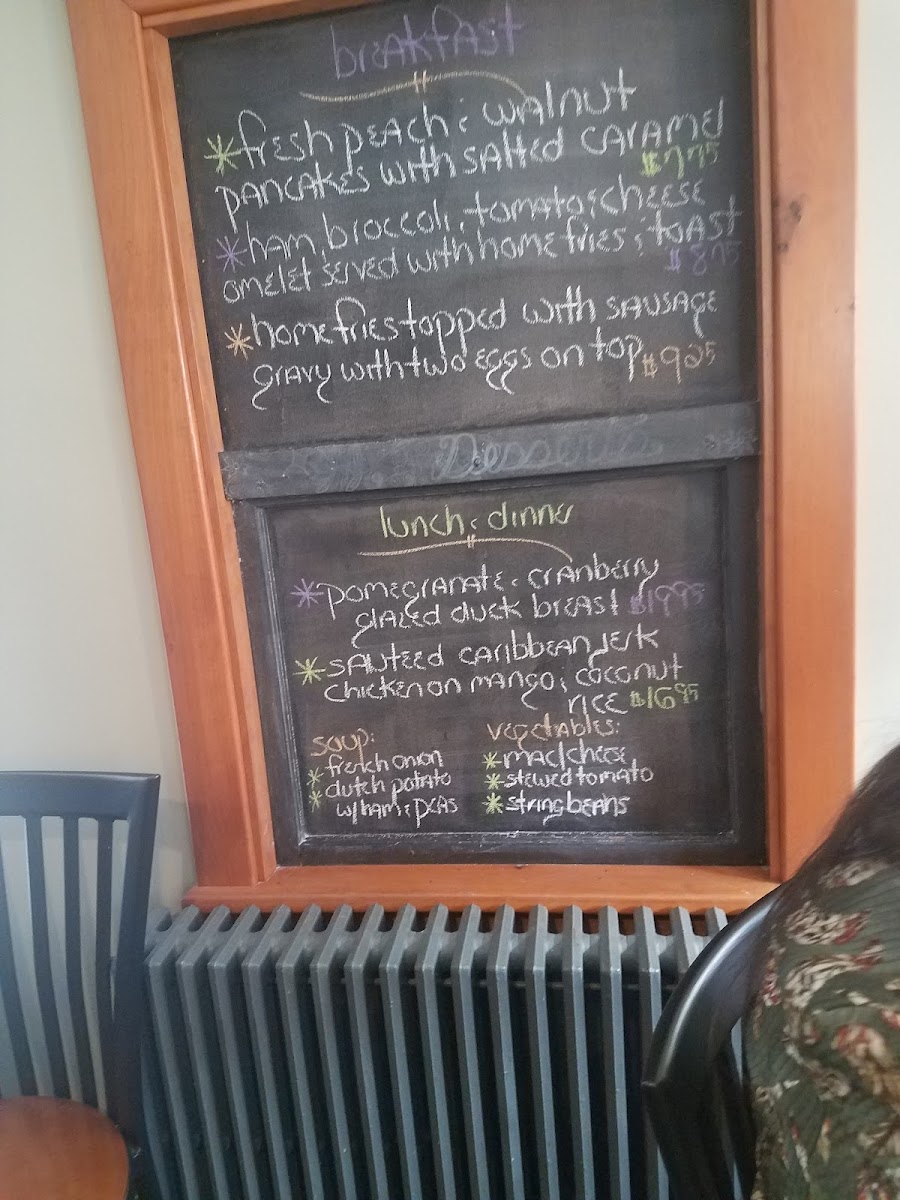 breakfast
*fresh peach & walnut
pancakes with salted caramel
$7.75
*ham, broccoli, tomato & cheese
omelet served with homefries & toast
$8.75
*homefries topped with sausage
gravy with two eggs on top $9.25
Desserts
lunch & dinner
*pomegranate & cranberry
glazed duck breast $19.95
*sauteed caribbean jerk
chicken on mango & coconut
rice $16.95
soup:
*french onion
*dutch potato
w/ham & peas
vegetables:
*mac/cheese
*stewed tomato
*string beans